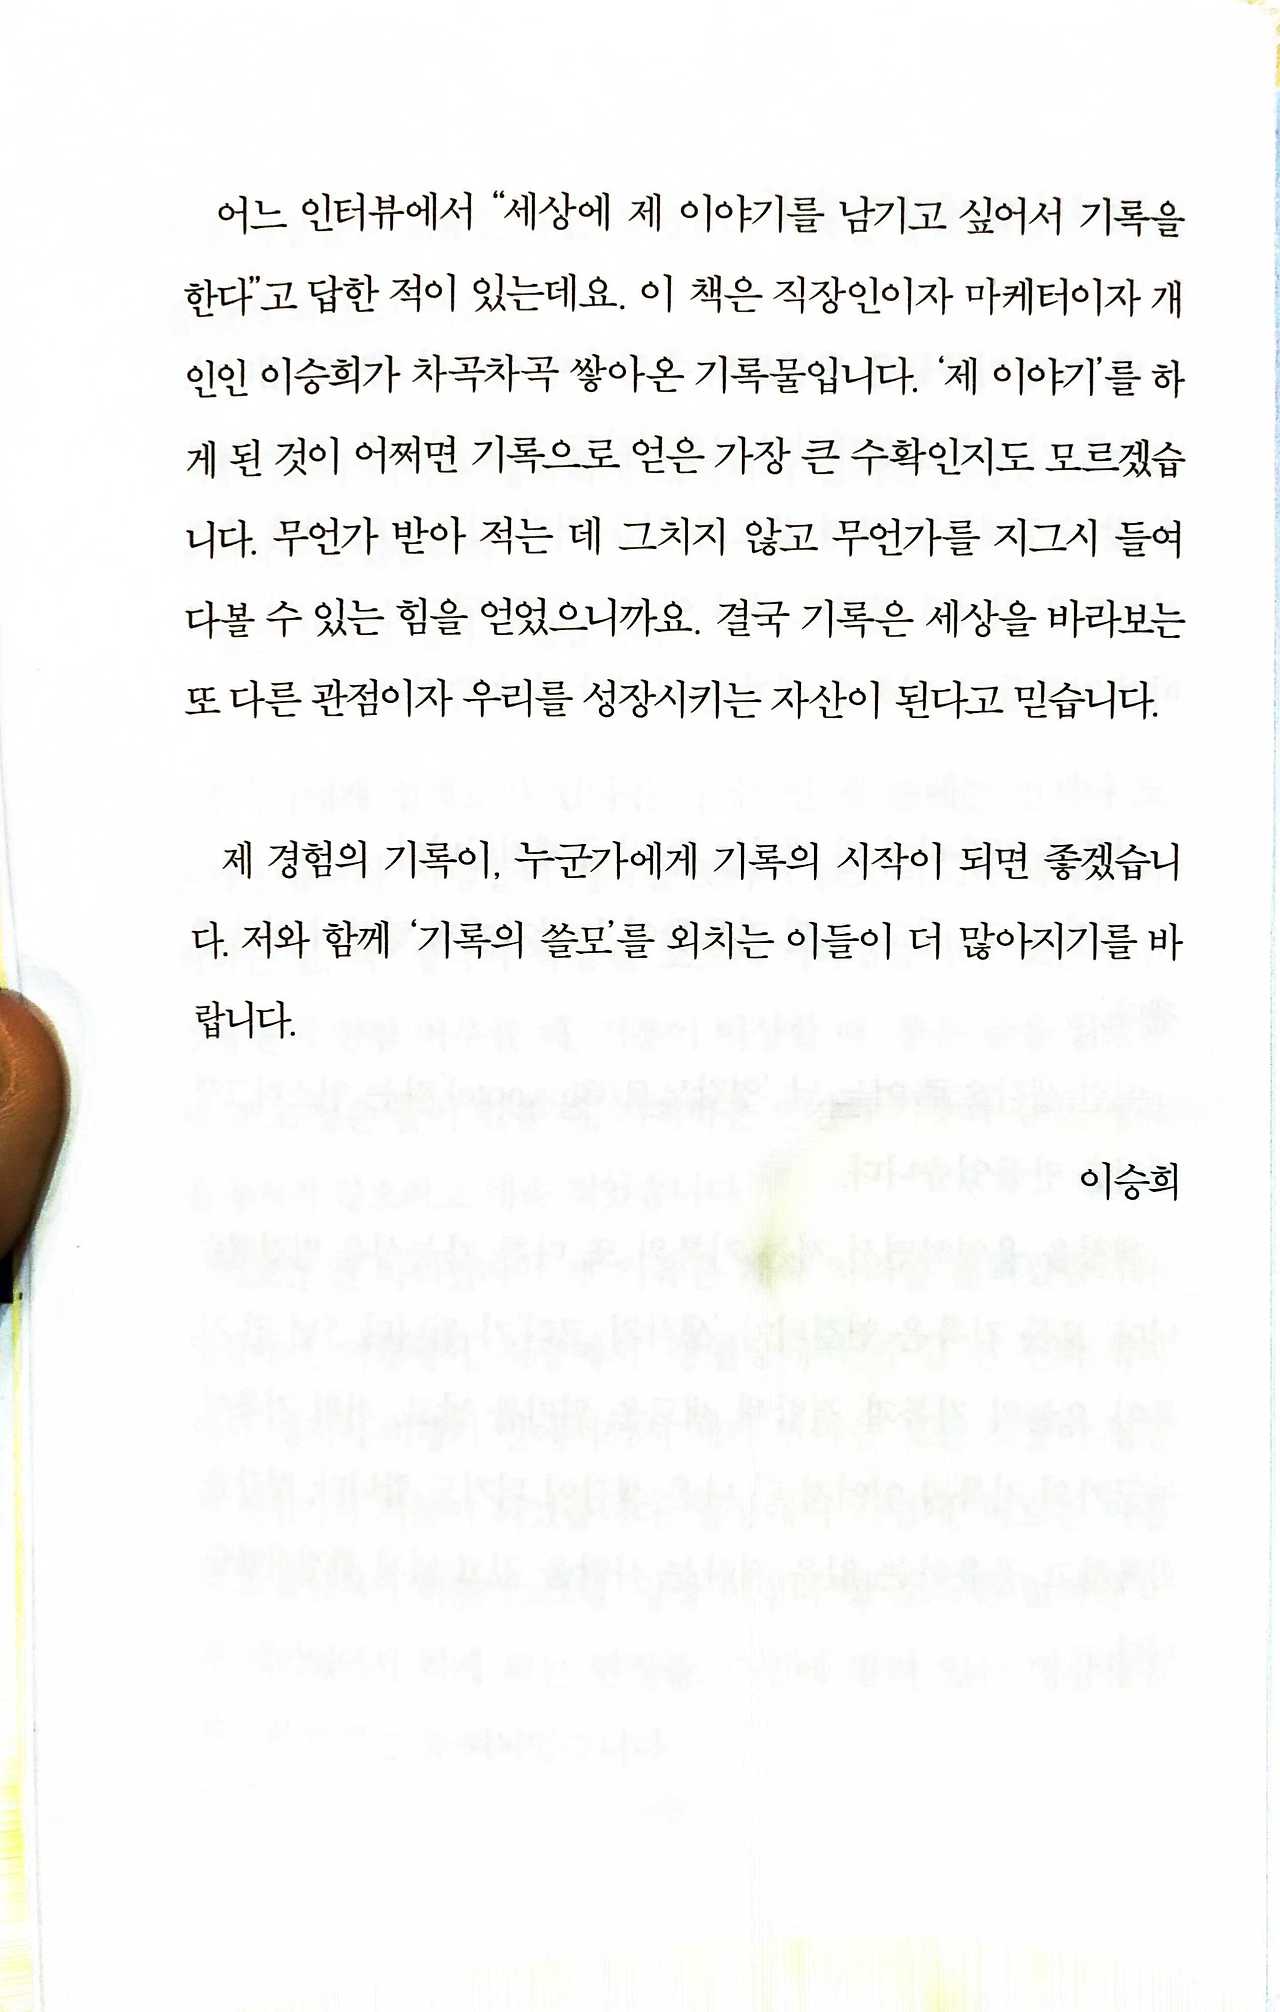 어느 인터뷰에서 “세상에 제 이야기를 남기고 싶어서 기록을
한다”고 답한 적이 있는데요. 이 책은 직장인이자 마케터이자 개
인인 이승희가 차곡차곡 쌓아온 기록물입니다. ‘제 이야기’를 하
게 된 것이 어쩌면 기록으로 얻은 가장 큰 수확인지도 모르겠습
니다. 무언가 받아 적는 데 그치지 않고 무언가를 지그시 들여
다볼 수 있는 힘을 얻었으니까요. 결국 기록은 세상을 바라보는
또 다른 관점이자 우리를 성장시키는 자산이 된다고 믿습니다.
제 경험의 기록이, 누군가에게 기록의 시작이 되면 좋겠습니
다. 저와 함께 ‘기록의 쓸모’를 외치는 이들이 더 많아지기를 바
랍니다.
이승희